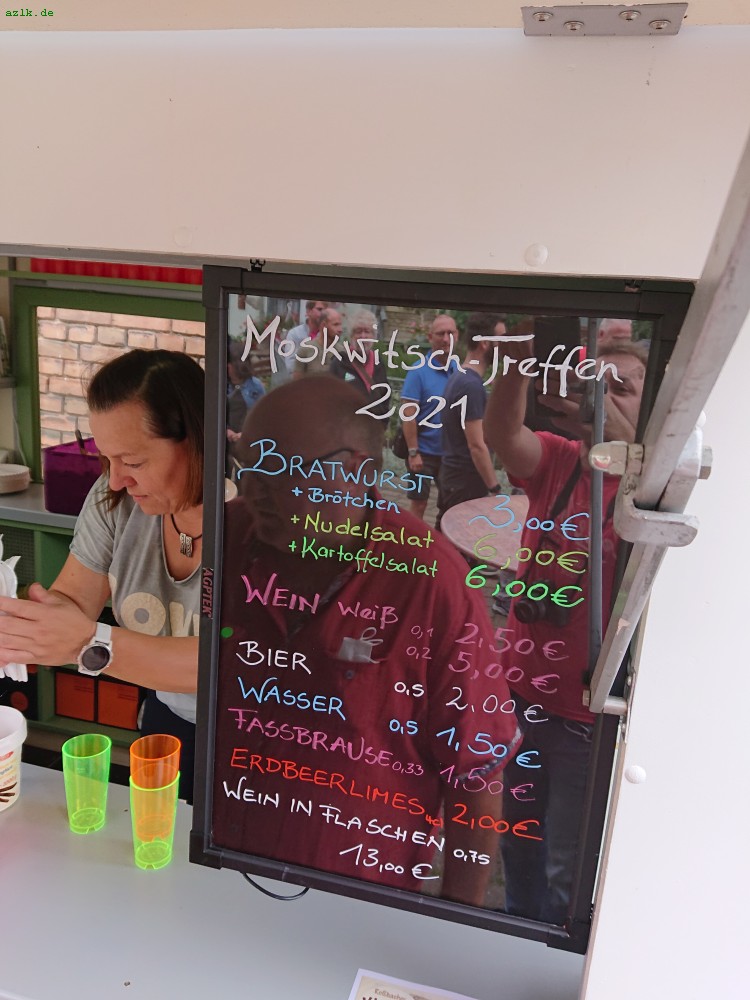 azlk.de
Moskwitsch-Treffen
2021
BRATWURST
+ Brötchen 3,00€
+ Nudelsalat 6,00€
+ Kartoffelsalat 6,00€
WEIN weiß 0,1 2,50€
0,2 5,00€
BIER 0,5 2,00€
WASSER 0,5 1,50€
FASSBRAUSE 0,33 1,50€
ERDBEERLIMES 4cl 2,00€
WEIN IN FLASCHEN 0,75
13,00€
AGPTEK